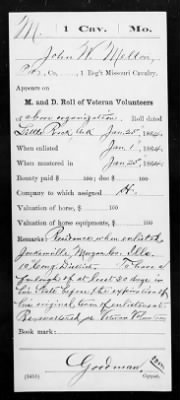 M. | 1 Cav. | Mo.
John W. Melton
Pvt., Co. , 1 Reg't Missouri Cavalry.
Appears on
M. and D. Roll of Veteran Volunteers
of above organization. Roll dated
Little Rock, Ark Jan 25, 1864.
When enlisted Jan. 1, 1864.
When mustered in Jan 25, 1864.
Bounty paid $ 100; due $ 100
Company to which assigned H.
Valuation of horse, $ 100
Valuation of horse equipments, $ 100
Remarks: Residence when enlisted
Jacksonville Morgan Co. Ills.
10" Cong. District. To have a
furlough of at least 30 days in
his State before the expiration of
his original term of enlistment
Remustered as Veteran Vol
Book mark:
Goodman
Copyist.